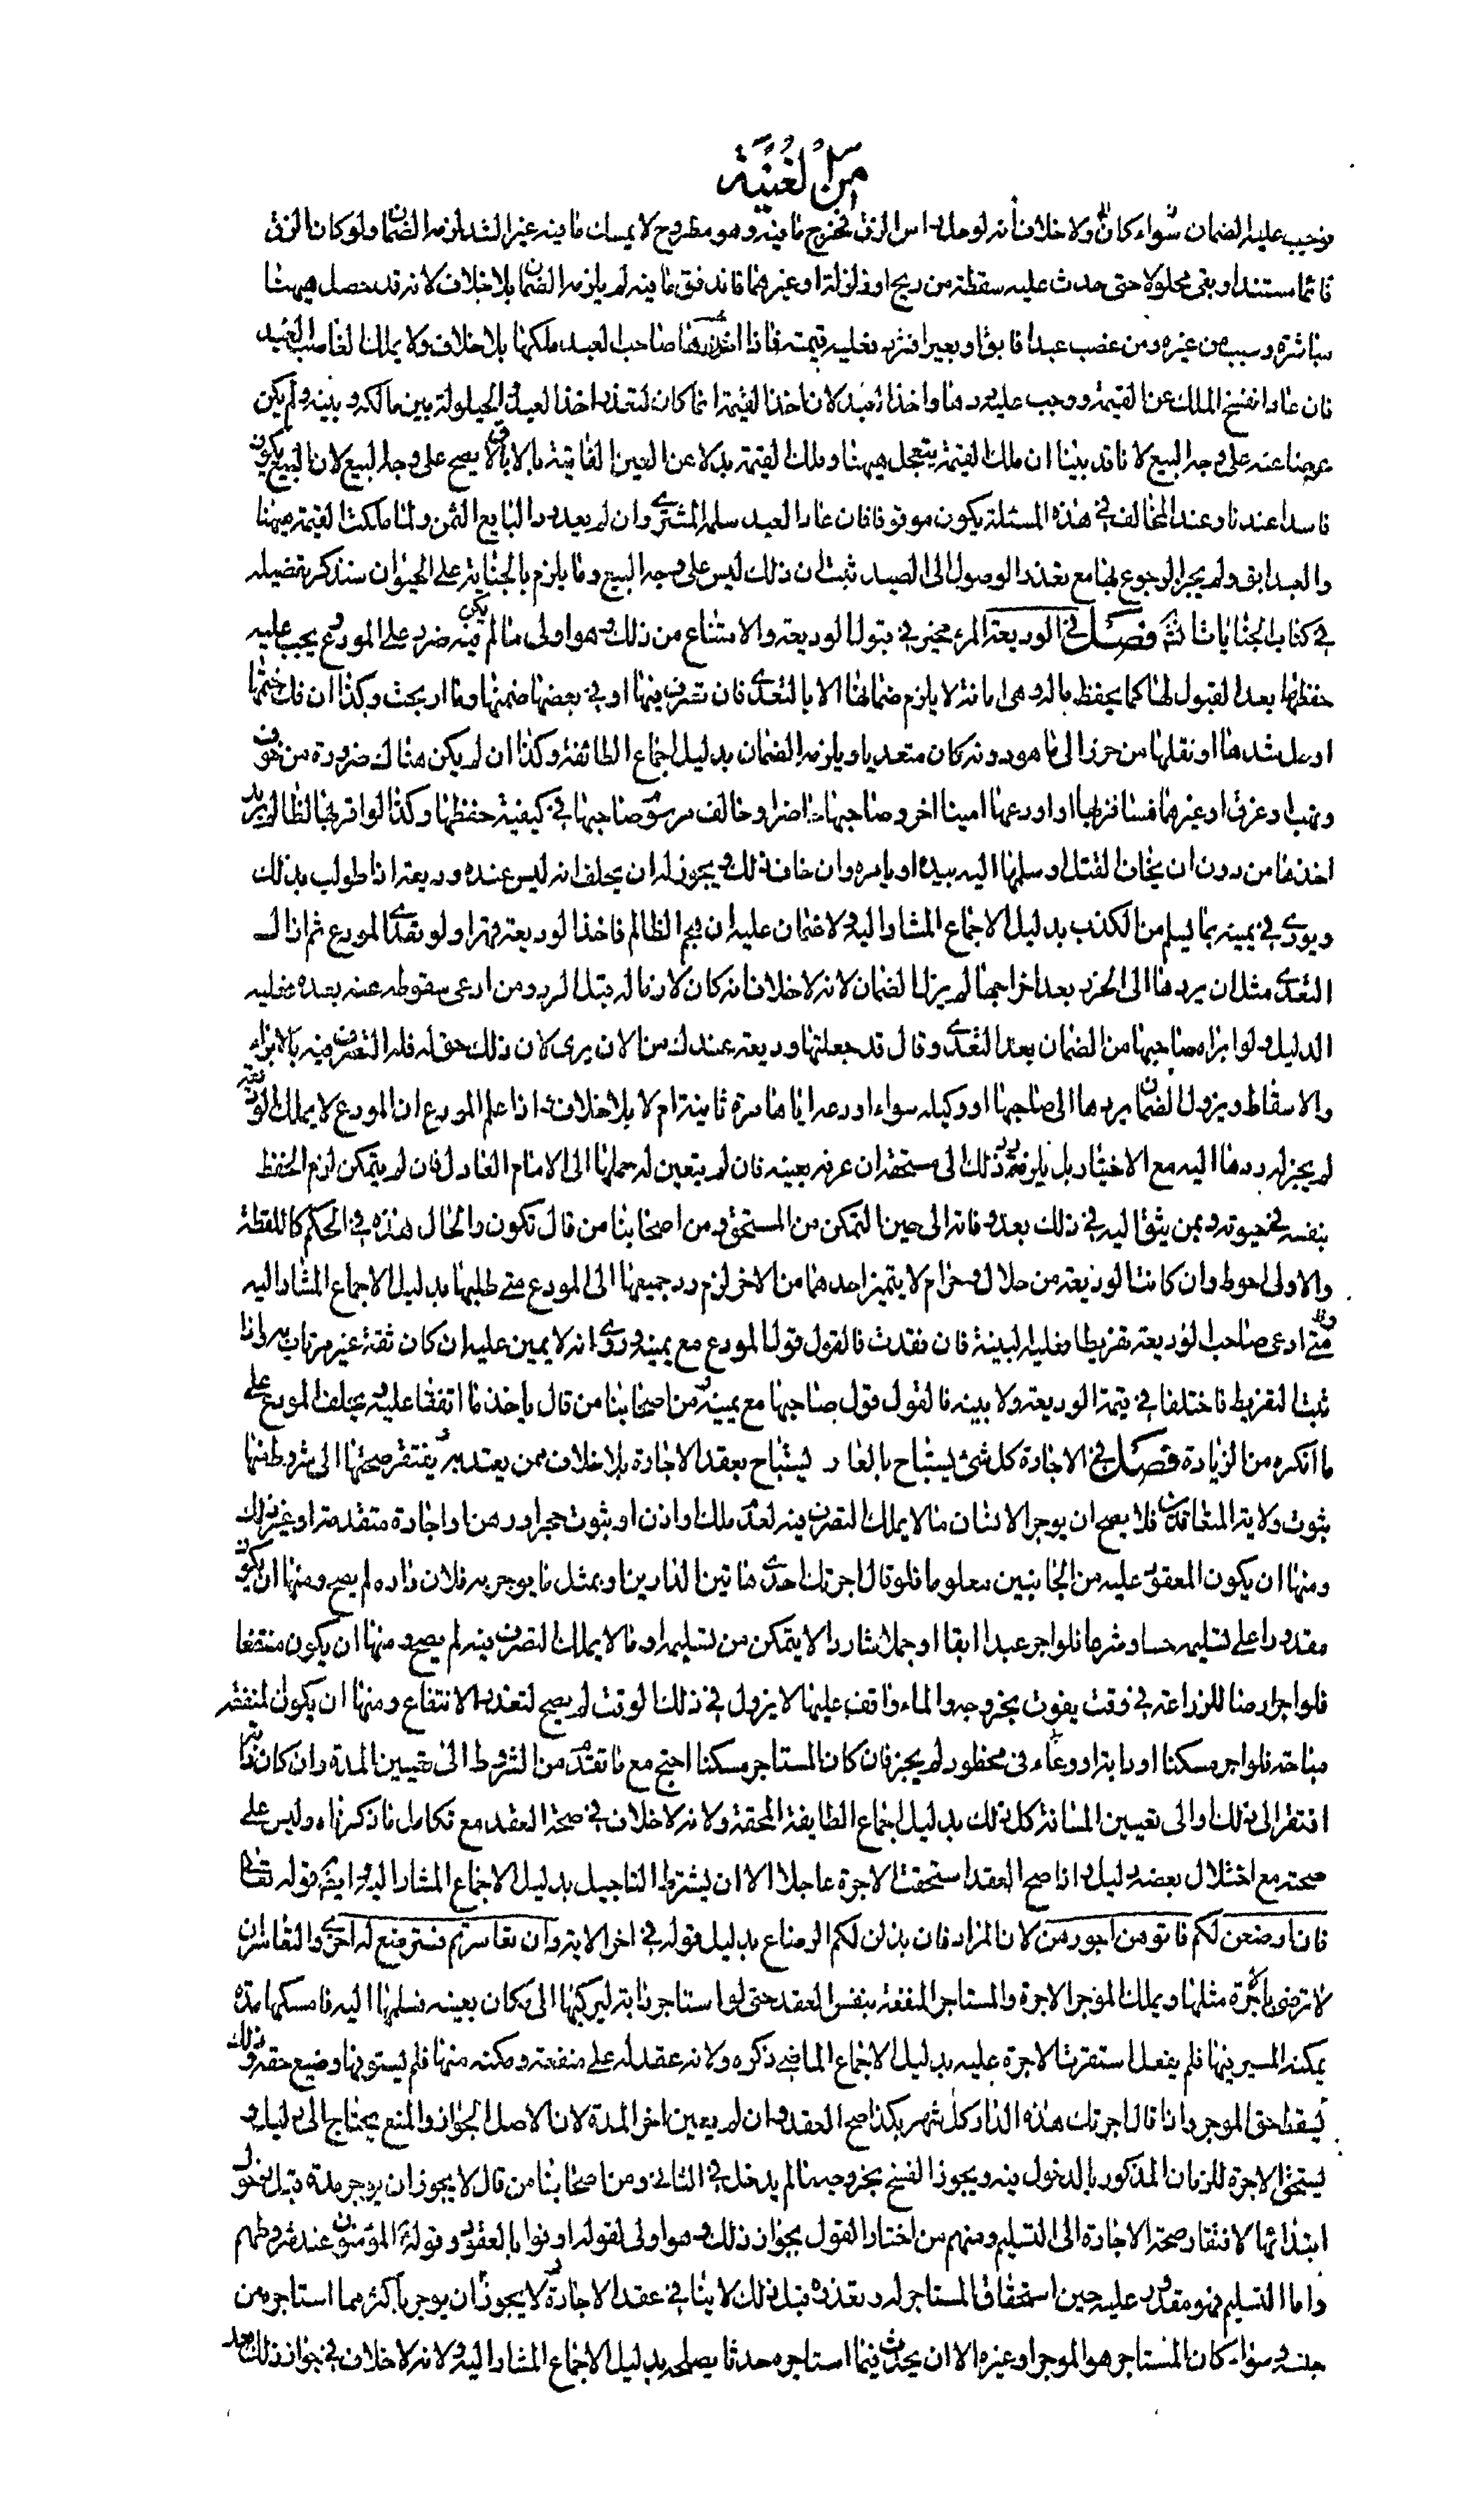 من الغنية
فوجب عليه الضمان سواء كان ولا خلاف أنه لو حل راس الزق فخرج ما فيه وهو مطروح لا يمسك ما فيه غير الشد لزمه الضمان ولو كان الزق
قائما مستندا وبقى محلولا حتى حدث عليه سقطة من ريح او زلزلة او غيرهما فاندفق ما فيه لم يلزمه الضمان بلا خلاف لانه قد حصل ههنا
مباشرة وسبب من غيره ومن غصب عبدا فابق او بعيرا فشرد فعليه قيمته فاذا اخذها صاحب العبد ملكها بلا خلاف ولا يملك الغاصب العبد
فان عاد انفسخ الملك عن القيمة ووجب عليه ردها واخذ العبد لان اخذ القيمة انما كان لتعذر اخذ العبد والحيلولة بين مالكه وبينه ولم يكن
عوضا عنه على وجه البيع لانا قد بينا ان ملك القيمة يتعجل ههنا وملك القيمة بدلا عن العين الفايتة بالاباق لا يصح على وجه البيع لان البيع يكون
فاسدا عندنا وعند المخالف في هذه المسئلة يكون موقوفا فان عاد العبد سلمه المشترى وان لم يعد رد البايع الثمن ولما ملكت القيمة ههنا
والعبد ابق ولم يجز الرجوع بها مع تعذر الوصول الى العبد ثبت ان ذلك ليس على وجه البيع وما يلزم بالجناية على الحيوان سنذكر تفصيله
في كتاب الجنايات انشاء الله فصل في الوديعة المرء مخير في قبول الوديعة والامتناع من ذلك وهو اولى ما لم يكن فيه ضرر على المودع يجب عليه
حفظها بعد القبول لها كما يحفظ ماله وهى امانة لا يلزم ضمانها الا بالتعدى فان تصرف فيها او في بعضها ضمنها وما اربحت وكذا ان فك ختمها
او حل شدها او نقلها من حرز الى ما هو دونه كان متعديا ويلزمه الضمان بدليل اجماع الطائفة وكذا ان لم يكن هناك ضرورة من خوف
ونهب او غرق او غيرهما فسافر بها او اودعها امينا اخر وصاحبها حاضر او خالف مرسوم صاحبها في كيفية حفظها وكذا لو اقر بها لظالم يريد
اخذها من دون ان يخاف القتل او سلمها اليه بيده او بامره وان خاف ذلك ويجوز له ان يحلف انه ليس عنده وديعة اذا طولب بذلك
ويورى في يمينه بما يسلم من الكذب بدليل الاجماع المشار اليه ولا ضمان عليه ان هجم الظالم فاخذ الوديعة قهرا ولو تعدى المودع ثم ازال
التعدى مثل ان يردها الى الحرز بعد اخراجها لم يزل الضمان لانه لا خلاف انه كان لازما له قبل الرد ومن ادعى سقوطه عنه بعده فعليه
الدليل ولو ابراه صاحبها من الضمان بعد التعدى وقال قد جعلتها وديعة عندك من الان برى لان ذلك حق له فله التصرف فيه بالابراء
والاسقاط ويزول الضمان بردها الى صاحبها او وكيله سواء اودعه اياها مرة ثانية ام لا بلا خلاف واذا علم المودع ان المودع لا يملك الوديعة
لم يجز له ردها اليه مع الاختيار بل يلزمه رد ذلك الى مستحقه ان عرفه بعينه فان لم يتعين له حملها الى الامام العادل فان لم يتمكن لزم الحفظ
بنفسه في حيوته وبمن يثق اليه في ذلك بعد وفاته الى حين التمكن من المستحق ومن اصحابنا من قال تكون والحال هذه في الحكم كاللقطة
والاولى احوط وان كانت الوديعة من حلال وحرام لا يتميز احدهما من الاخر لزم رد جميعها الى المودع متى طلبها بدليل الاجماع المشار اليه
ومتى ادعى صاحب الوديعة تفريطا فعليه البينة فان فقدت فالقول قول المودع مع يمينه وروى انه لا يمين عليه ان كان ثقة غير مرتاب به واذا
ثبت التفريط فاختلفا في قيمة الوديعة ولا بينة فالقول قول صاحبها مع يمينه ومن اصحابنا من قال ياخذ ما اتفقا عليه ويحلف المودع على
ما انكره من الزيادة فصل في الاجارة كل شئ يستباح بالعار يستباح بعقد الاجارة بلا خلاف ممن يعتد به ويفتقر صحتها الى شروط منها
ثبوت ولاية المتعاقدين فلا يصح ان يوجر الانسان ما لا يملك التصرف فيه لعدم ملك او اذن او ثبوت حجر او رهن او اجارة متقدمة او غير ذلك
ومنها ان يكون المعقود عليه من الجانبين معلوما فلو قال اجرتك احدى هاتين الدارين او بمثل ما يوجر به فلان داره لم يصح ومنها ان يكون
مقدورا على تسليمه حسا وشرعا فلو اجر عبدا ابقا او جملا شاردا لا يتمكن من تسليمه او ما لا يملك التصرف فيه لم يصح ومنها ان يكون منتفعا
فلو اجر ارضا للزراعة في وقت يفوت بخروجه والماء واقف عليها لا يزول في ذلك الوقت لم يصح لتعذر الانتفاع ومنها ان يكون المنفعة
مباحة فلو اجر مسكنا او دابة او وعاء في محظور لم يجز فان كان المستاجر مسكنا احتج مع ما تقدم من الشروط الى تعيين المدة وان كان دابة
افتقر الى ذلك والى تعيين المسافة كل ذلك بدليل اجماع الطايفة المحقة ولانه لا خلاف في صحة العقد مع تكامل ما ذكرناه وليس على
صحته مع اختلال بعضه دليل واذا صح العقد استحقت الاجرة عاجلا الا ان يشترط التاجيل بدليل الاجماع المشار اليه وايضا قوله تعالى
فان ارضعن لكم فاتوهن اجورهن لان المراد فان بذلن لكم الرضاع بدليل قوله في اخر الاية وان تعاسرتم فسترضع له اخرى والتعاسر ان
لا ترضى باجرة مثلها ويملك الموجر الاجرة والمستاجر المنفعة بنفس العقد حتى لو استاجر دابة ليركبها الى مكان بعينه فسلمها اليه فامسكها مدة
يمكنه المسير فيها فلم يفعل استقرت الاجرة عليه بدليل الاجماع الماضى ذكره ولانه عقد له على منفعة ومكنه منها فلم يستوفها وضيع حقه وذلك
يسقط حق الموجر واذا قال اجرتك هذه الدار كل شهر بكذا صح العقد وان لم يعين اخر المدة لان الاصل الجواز والمنع يحتاج الى دليل و
يستحق الاجرة للزمان المذكور بالدخول فيه ويجوز الفسخ بخروجه ما لم يدخل في الثانى ومن اصحابنا من قال لا يجوز ان يوجر مدة قبل دخول
ابتدائها لافتقار صحة الاجارة الى التسليم ومنهم من اختار القول بجواز ذلك وهو اولى لقوله اوفوا بالعقود وقوله المؤمنون عند شروطهم
واما التسليم فهو مقدور عليه حين استحقاق المستاجر له وتعذره قبل ذلك لا ينافى عقد الاجارة ولا يجوز ان يوجر باكثر مما استاجره من
جنسه سواء كان المستاجر هو الموجر او غيره الا ان يحدث فيما استاجره حدثا يصلحه بدليل الاجماع المشار اليه ولانه لا خلاف في جواز ذلك بعد